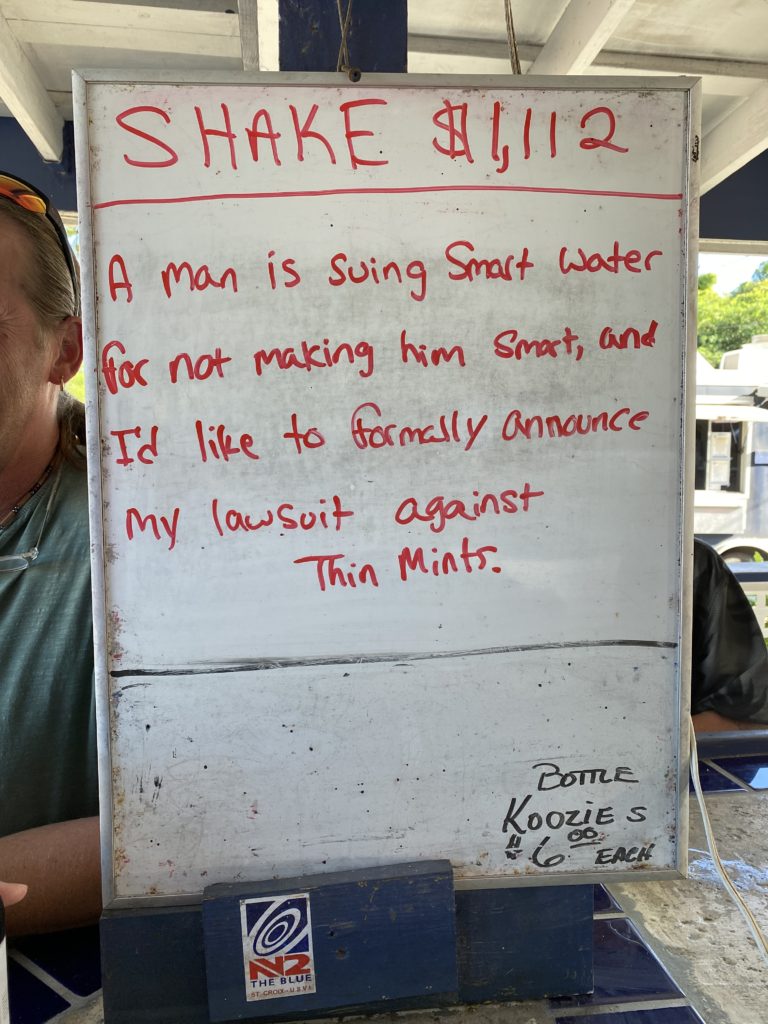 SHAKE $1,112
A man is suing Smart water
for not making him smart, and
I'd like to formally announce
my lawsuit against
Thin Mints.
BOTTLE
KOOZIES
$6.00 EACH
N2
THE BLUE
ST. CROIX - U.S.V.I.